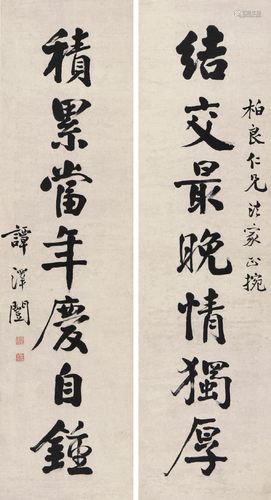 柏良仁兄法家正捥
結交最晚情獨厚
積累當年慶自鍾
譚澤闓